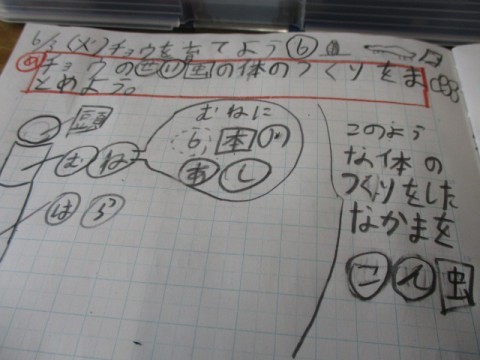 6/3(火)チョウを育てよう⑥
め チョウのせい虫の体のつくりをま
とめよう。
頭
むね
はら
むねに
6本の
あし
このよう
な体の
つくりをした
なかまを
こん虫